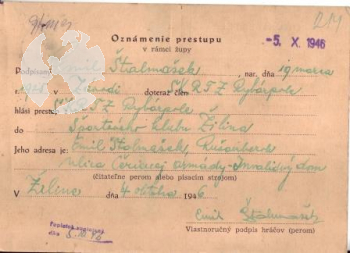 214
Oznámenie prestupu
v rámci župy
-5. X. 1946
Podpísaný Emil Štalmašek, nar. dňa 19 marca
v doteraz člen ŠK RTZ Rybárpole
hlási prestup ŠK RTZ Rybárpole
do Športového klubu Žilina
Jeho adresa je: Emil Štalmašek, Ružomberok
ulica Červenej armády - Invalidný dom
(čitateľne perom alebo písacím strojom)
V Žiline dňa 4 októbra 1946
Emil Štalmašek
Vlastnoručný podpis hráčov (perom)
Poplatok zaplatený
dňa